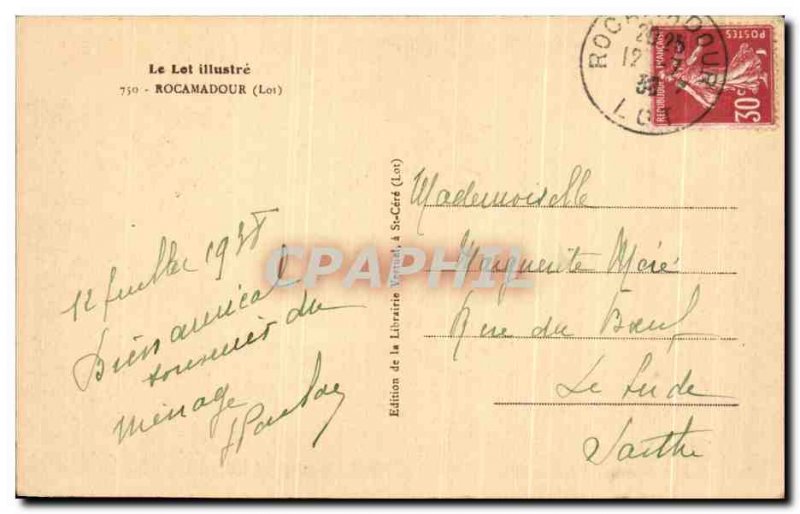 Le Lot illustré
750 - ROCAMADOUR (Lot)
12 juillet 193
Bien amical
souvenir du
Ménage
Edition de la Librairie Vertuel, à St-Céré (Lot)
CPAPHIL
ROCAMADOUR
12 7
38
LOT
POSTES
REPUBLIQUE FRANÇAISE
30c
Mademoiselle
Marguerite Méré
Rue du Bœuf
Le Lude
Sarthe